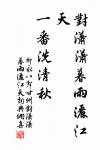 對瀟瀟暮雨灑江
天
一番洗清秋
柳永八聲甘州對瀟瀟
暮雨灑江天詞典網集